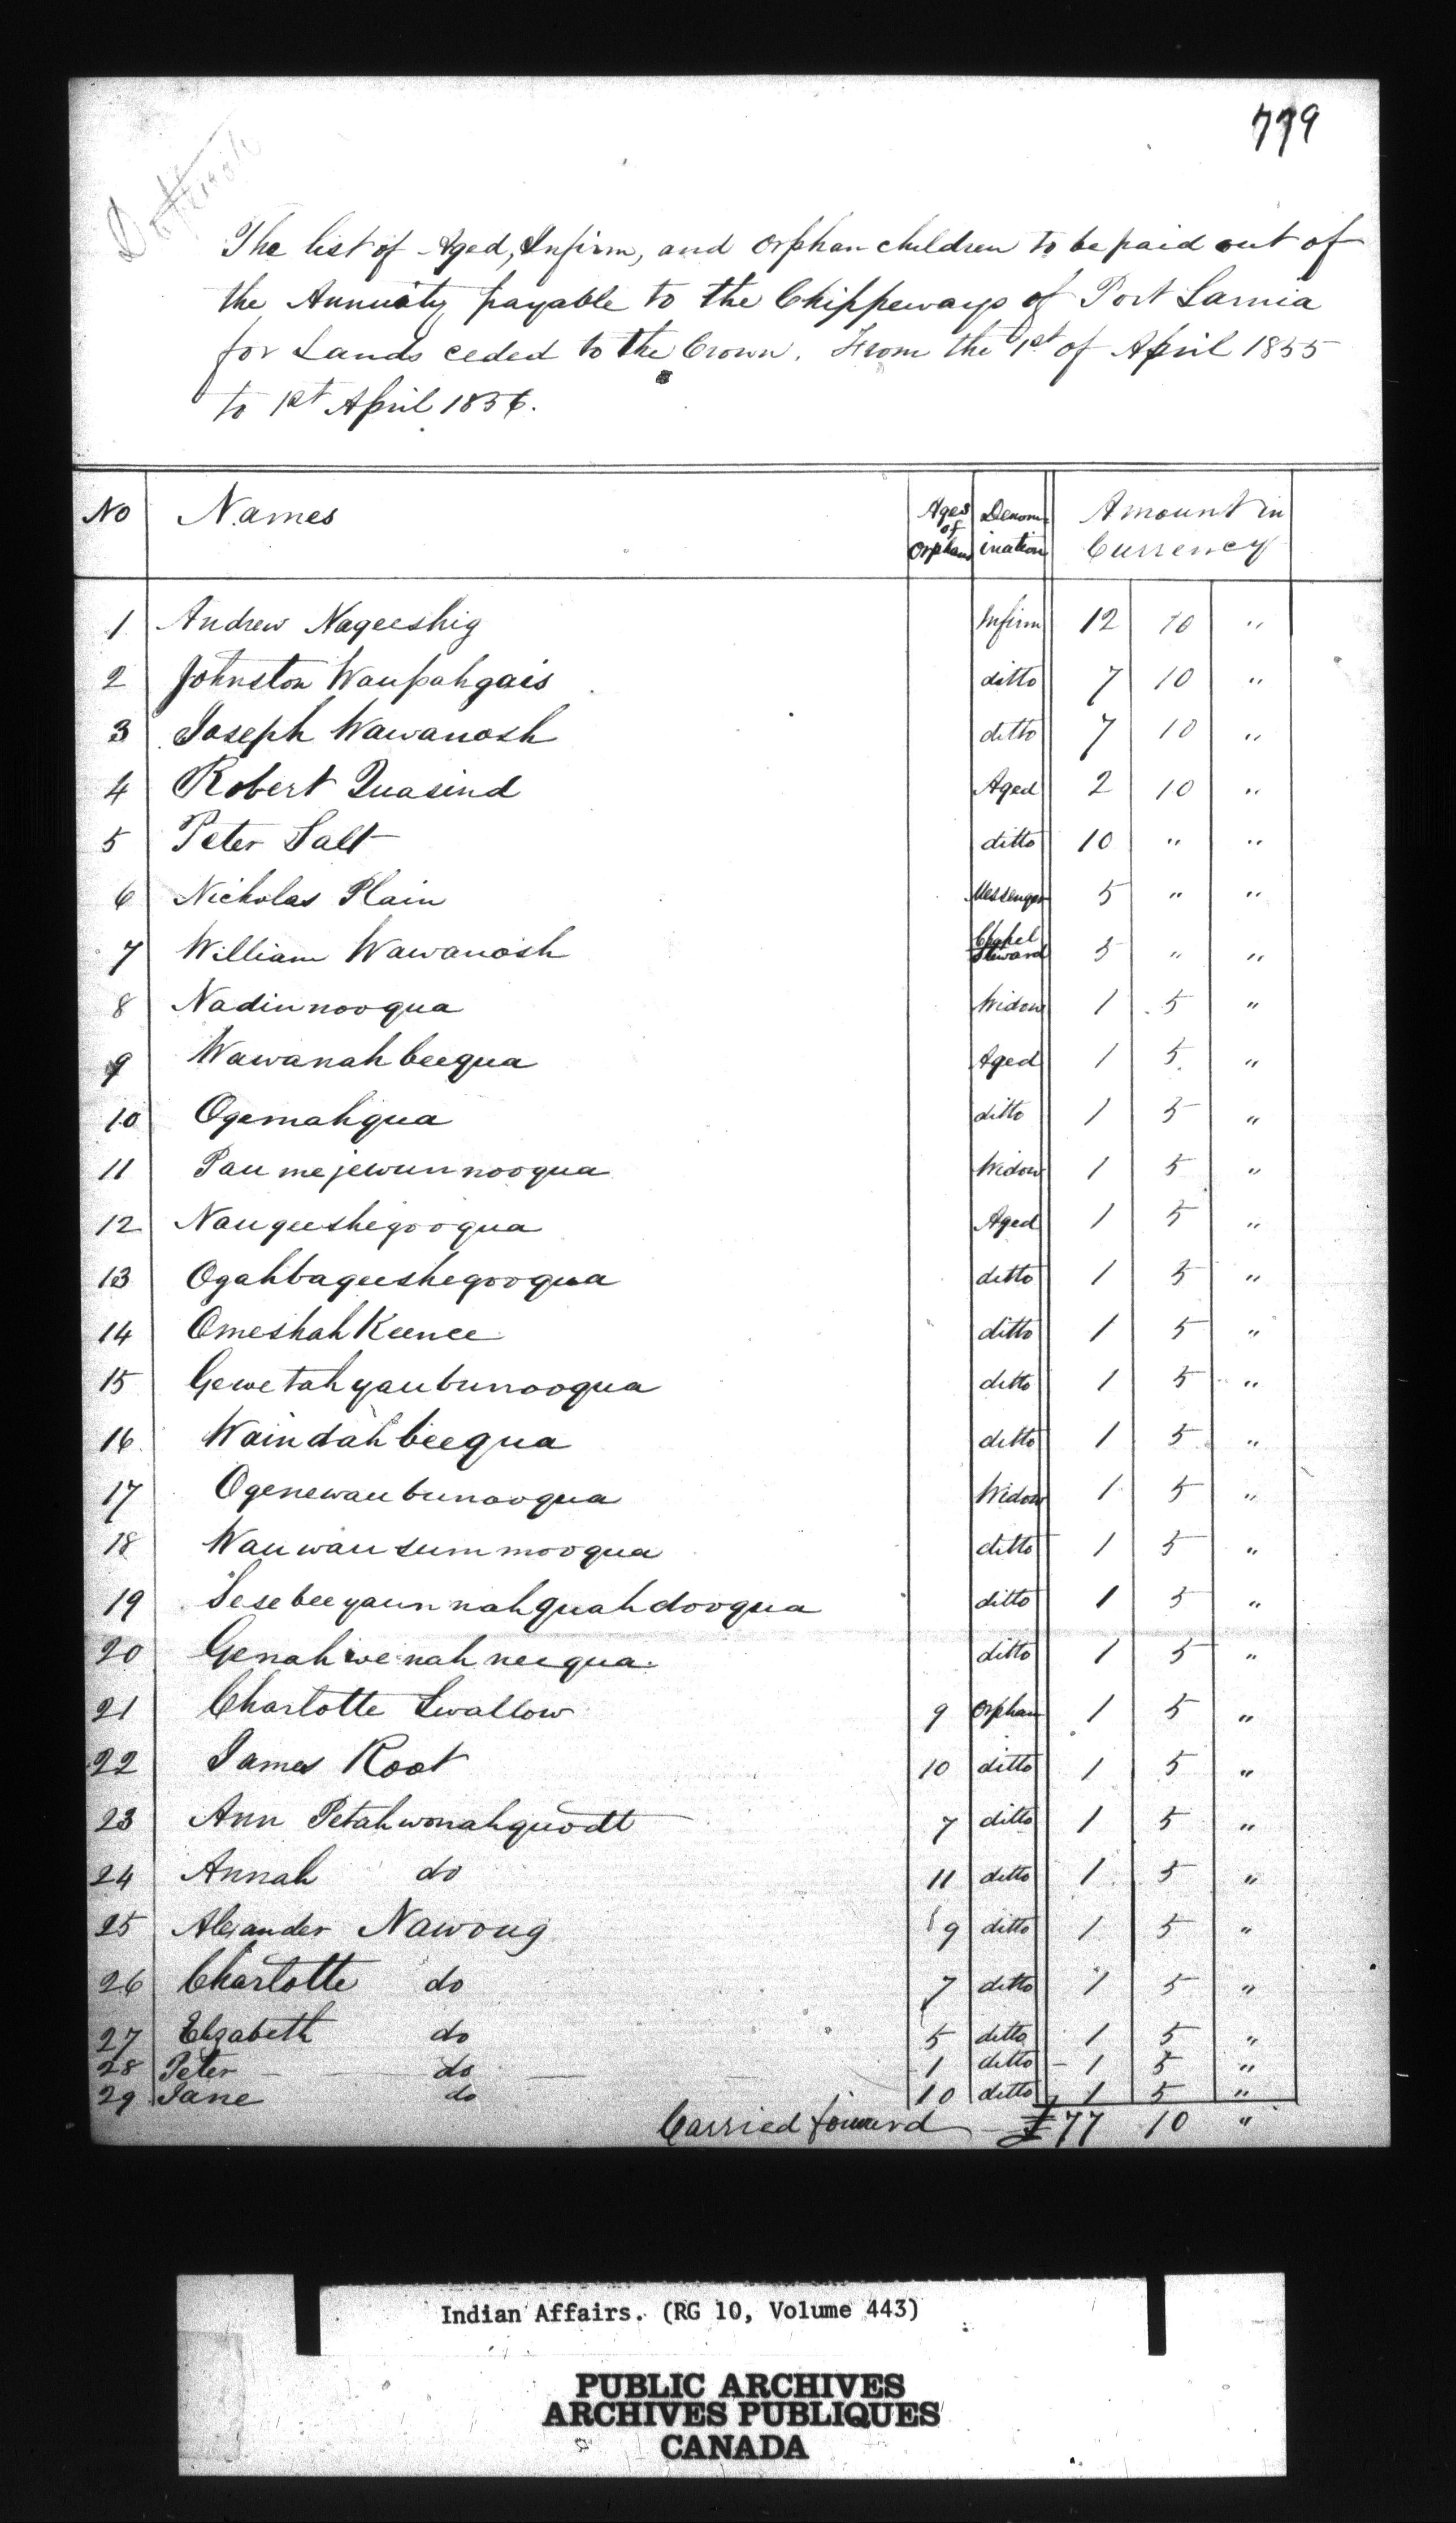 779
The list of Aged, Infirm, and Orphan children to be paid out of
the Annuity payable to the Chippeways of Port Sarnia
for Lands ceded to the Crown. From the 1st of April 1855
to 1st April 1856.
No Names Ages of Orphans Denomination Amount in Currency
1 Andrew Nageeshig Infirm 12 10 "
2 Johnston Waupahgais ditto 7 10 "
3 Joseph Wawanosh ditto 7 10 "
4 Robert Quasind Aged 2 10 "
5 Peter Salt ditto 10 " "
6 Nicholas Plain Messenger 5 " "
7 William Wawanosh Chapel Steward 5 " "
8 Nadinnooqua Widow 1 5 "
9 Wawanahbeequa Aged 1 5 "
10 Ogemahqua ditto 1 5 "
11 Paumejewunnooqua Widow 1 5 "
12 Naugeeshegooqua Aged 1 5 "
13 Ogahbageeshegooqua ditto 1 5 "
14 OmeshahKeence ditto 1 5 "
15 Gewetahyaubunooqua ditto 1 5 "
16 Waindahbeequa ditto 1 5 "
17 Ogenewaubunooqua Widow 1 5 "
18 Wauwausummooqua ditto 1 5 "
19 Sesebeeyaunnahquahdooqua ditto 1 5 "
20 Genahwenahneequa ditto 1 5 "
21 Charlotte Swallow 9 Orphan 1 5 "
22 James Root 10 ditto 1 5 "
23 Ann Petahwonahquodt 7 ditto 1 5 "
24 Annah do 11 ditto 1 5 "
25 Alexander Nawong 9 ditto 1 5 "
26 Charlotte do 7 ditto 1 5 "
27 Elizabeth do 5 ditto 1 5 "
28 Peter do 1 ditto 1 5 "
29 Jane do 10 ditto 1 5 "
Carried forward £77 10 "
Indian Affairs. (RG 10, Volume 443)
PUBLIC ARCHIVES
ARCHIVES PUBLIQUES
CANADA